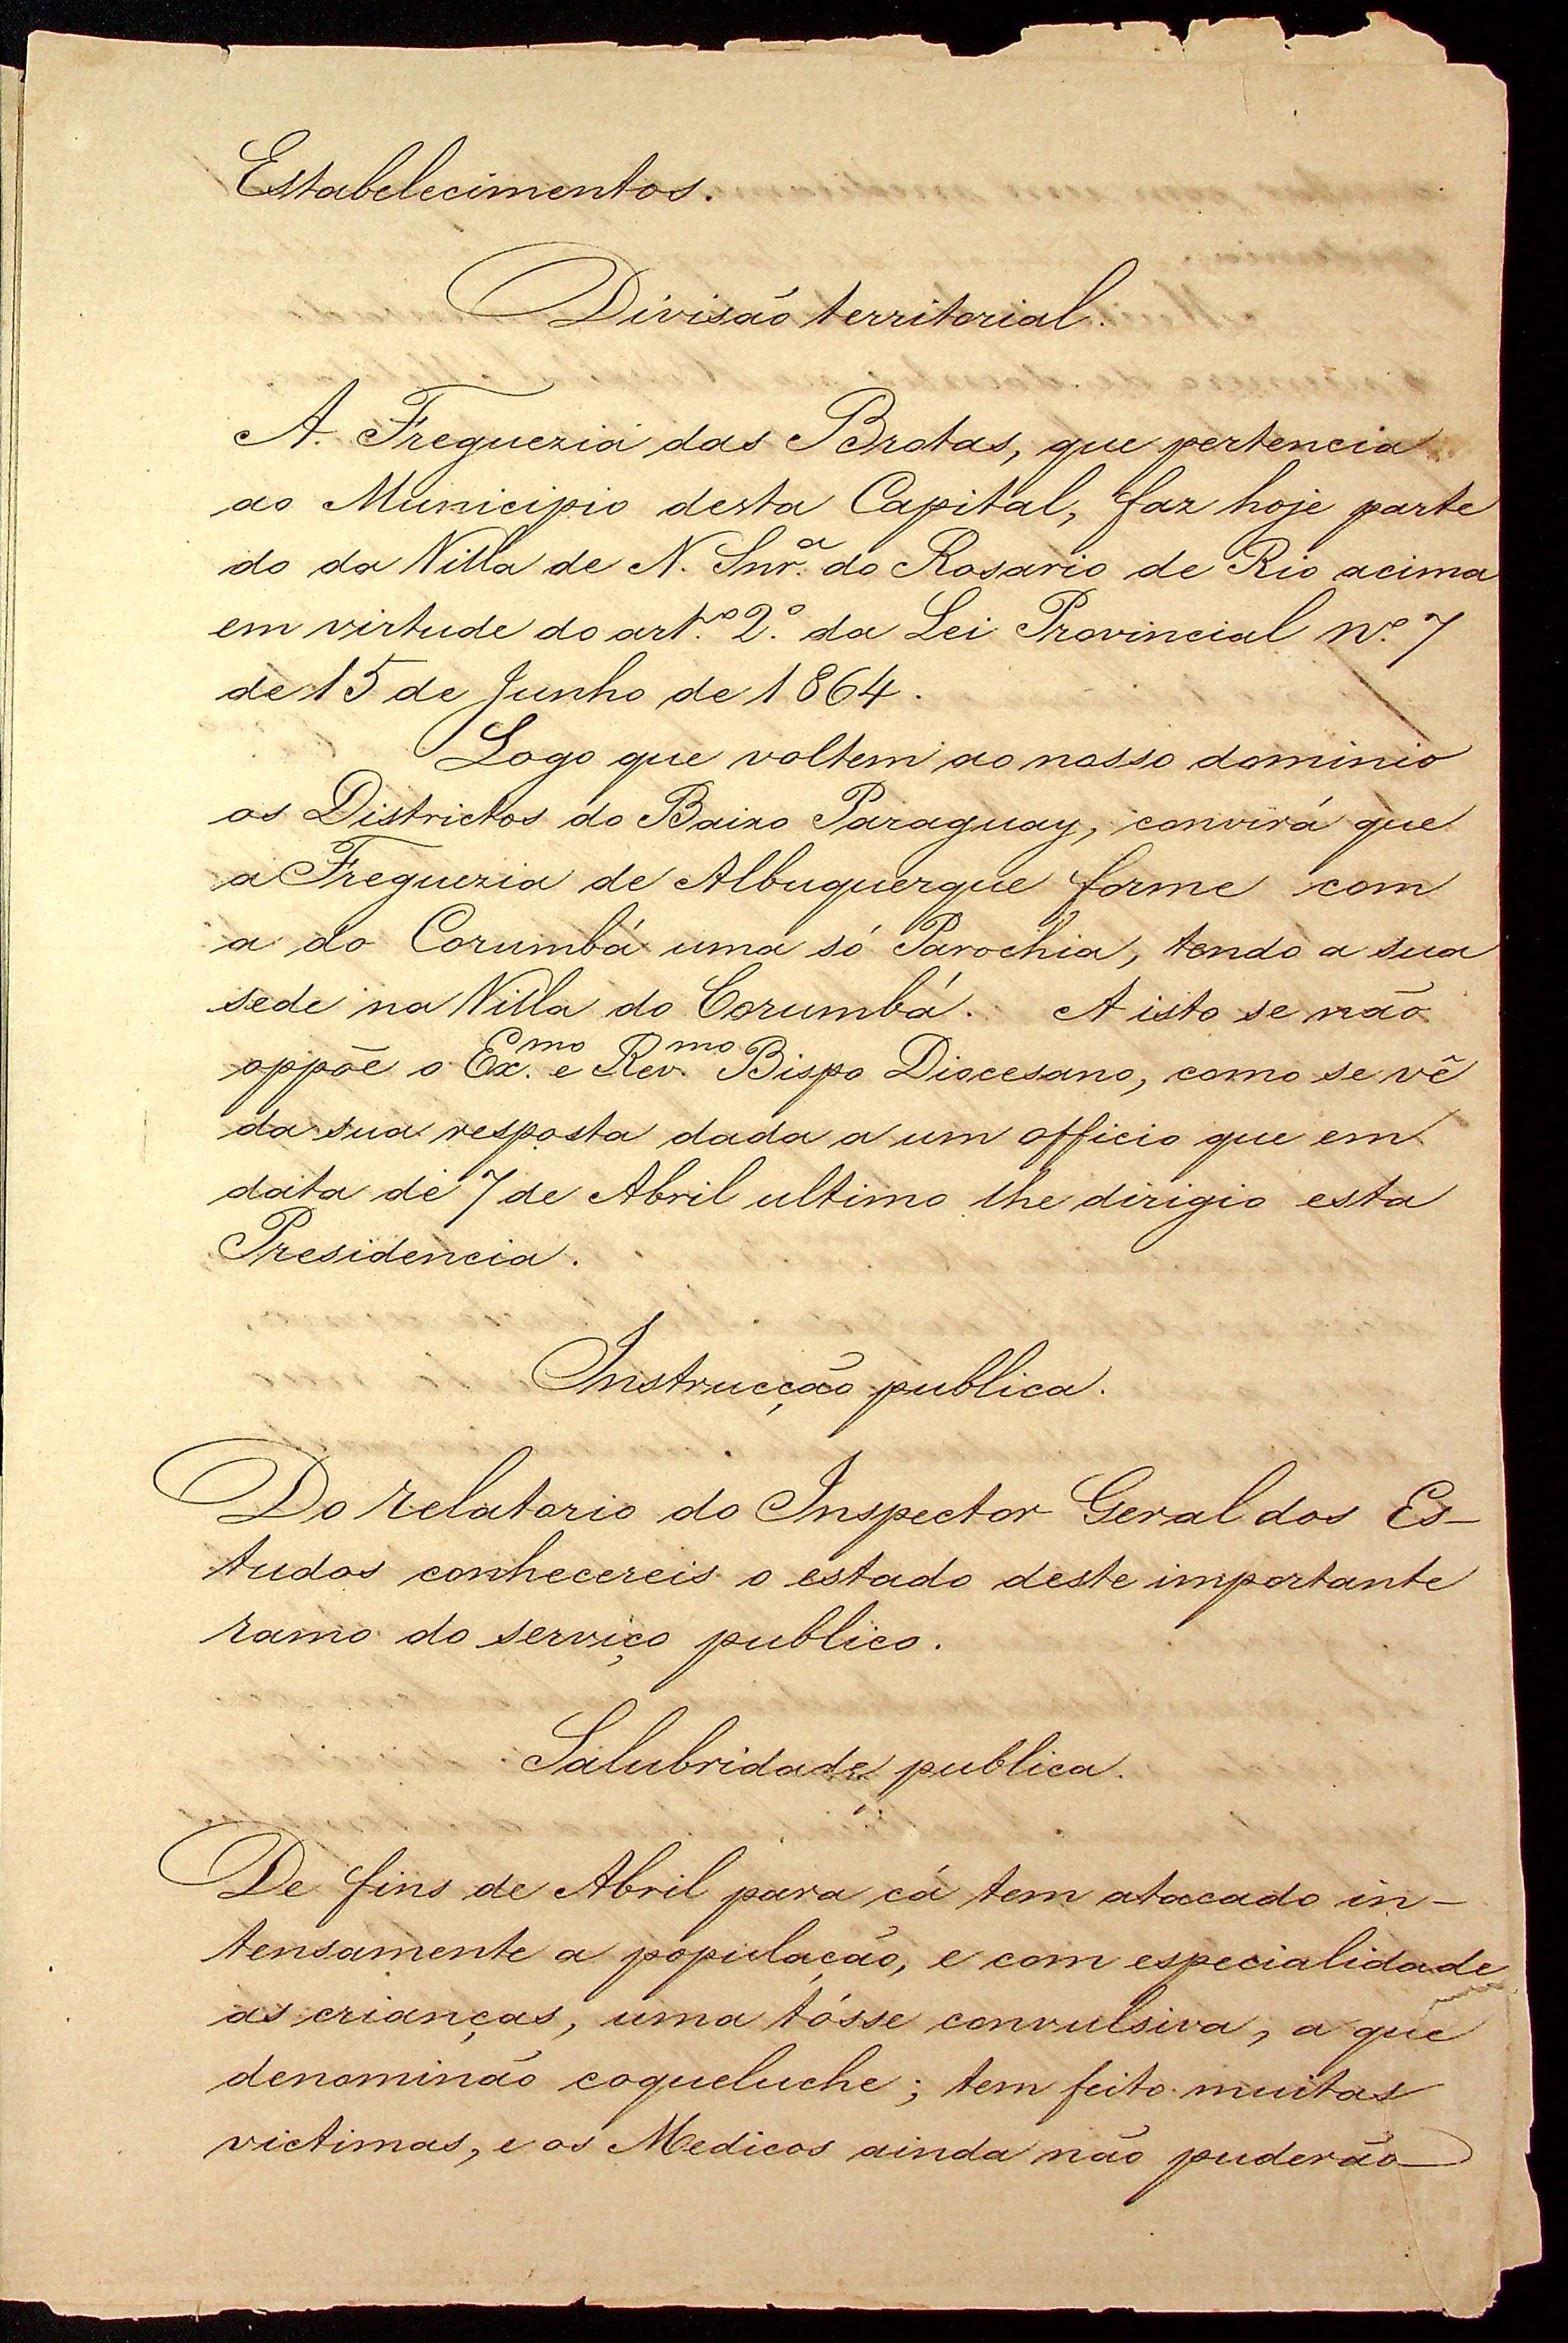 Estabelecimentos.
Divisão territorial.
A Freguezia das Brotas, que pertencia
ao Municipio desta Capital, faz hoje parte
do da Villa de N. Snr.ª do Rosario de Rio acima
em virtude do art.º 2.º da Lei Provincial nº. 7
de 15 de Junho de 1864.
Logo que voltem ao nosso dominio
os Districtos do Baixo Paraguay, convirá que
a Freguezia de Albuquerque forme com
a do Corumbá uma só Parochia, tendo a sua
sede na Villa do Corumbá. A isto se não
oppõe o Ex.mo e Rev.mo Bispo Diocesano, como se vê
da sua resposta dada a um officio que em
data de 7 de Abril ultimo lhe dirigio esta
Presidencia.
Instrucção publica.
Do relatorio do Inspector Geral dos Es-
tudos conhecereis o estado deste importante
ramo do serviço publico.
Salubridade publica.
De fins de Abril para cá tem atacado in-
tensamente a população, e com especialidade
as crianças, uma tósse convulsiva, a que
denominão coqueluche; tem feito muitas
victimas, e os Medicos ainda não puderão